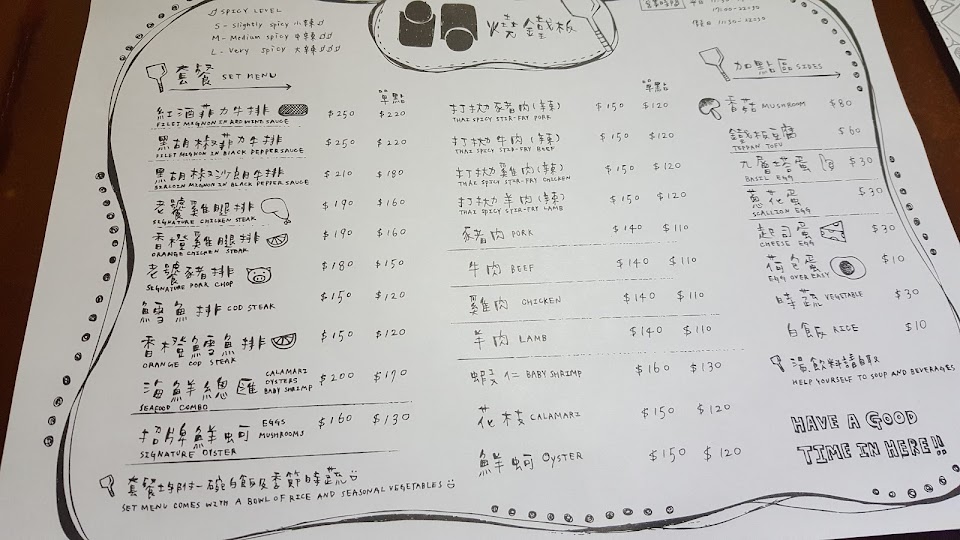 SPICY LEVEL
S - Slightly spicy 小辣
M - Medium spicy 中辣
L - Very spicy 大辣
燒鐵板
平日 11:30-
17:00-22:30
假日 11:30-22:30
套餐 SET MENU
單點
紅酒菲力牛排 $250 $220
FILET MIGNON IN RED WINE SAUCE
黑胡椒菲力牛排 $250 $220
FILET MIGNON IN BLACK PEPPER SAUCE
黑胡椒沙朗牛排 $210 $180
SIRLOIN MIGNON IN BLACK PEPPER SAUCE
老饕雞腿排 $190 $160
SIGNATURE CHICKEN STEAK
香橙雞腿排 $190 $160
ORANGE CHICKEN STEAK
老饕豬排 $180 $150
SIGNATURE PORK CHOP
鱈魚排 COD STEAK $150 $120
香橙鱈魚排 $150 $120
ORANGE COD STEAK
海鮮總匯 CALAMARI OYSTERS BABY SHRIMP $200 $170
SEAFOOD COMBO
招牌鮮蚵 EGGS MUSHROOMS $160 $130
SIGNATURE OYSTER
套餐均附一碗白飯及季節時蔬
SET MENU COMES WITH A BOWL OF RICE AND SEASONAL VEGETABLES
單點
打拋豬肉(辣) $150 $120
THAI SPICY STIR-FRY PORK
打拋牛肉(辣) $150 $120
THAI SPICY STIR-FRY BEEF
打拋雞肉(辣) $150 $120
THAI SPICY STIR-FRY CHICKEN
打拋羊肉(辣) $150 $120
THAI SPICY STIR-FRY LAMB
豬肉 PORK $140 $110
牛肉 BEEF $140 $110
雞肉 CHICKEN $140 $110
羊肉 LAMB $140 $110
蝦仁 BABY SHRIMP $160 $130
花枝 CALAMARI $150 $120
鮮蚵 OYSTER $150 $120
加點區 SIDES
香菇 MUSHROOM $80
鐵板豆腐 $60
TEPPAN TOFU
九層塔蛋 $30
BASIL EGG
蔥花蛋 $30
SCALLION EGG
起司蛋 $30
CHEESE EGG
荷包蛋 $10
EGG OVER EASY
時蔬 VEGETABLE $30
白飯 RICE $10
湯、飲料請自取
HELP YOURSELF TO SOUP AND BEVERAGES
HAVE A GOOD
TIME IN HERE!!